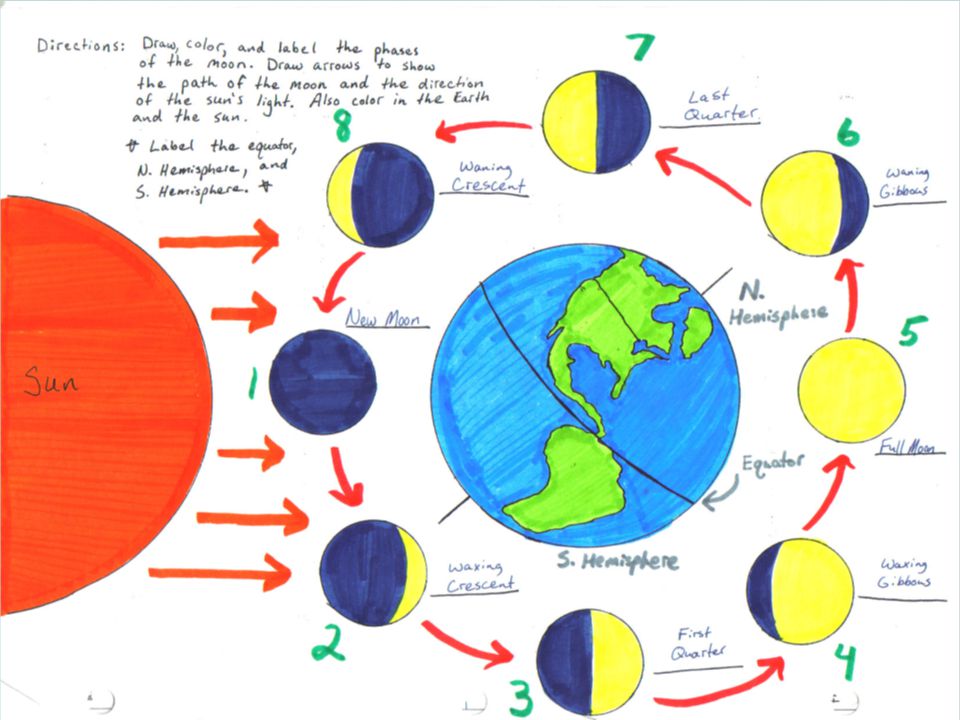 Directions: Draw, color, and label the phases
of the moon. Draw arrows to show
the path of the moon and the direction
of the sun's light. Also color in the Earth
and the sun.
* Label the equator,
N. Hemisphere, and
S. Hemisphere. *
7
Last
Quarter
8
Waning
Crescent
6
Waning
Gibbous
New Moon
N.
Hemisphere
1
Sun
5
Full Moon
Equator
S. Hemisphere
Waxing
Crescent
2
Waxing
Gibbous
4
First
Quarter
3